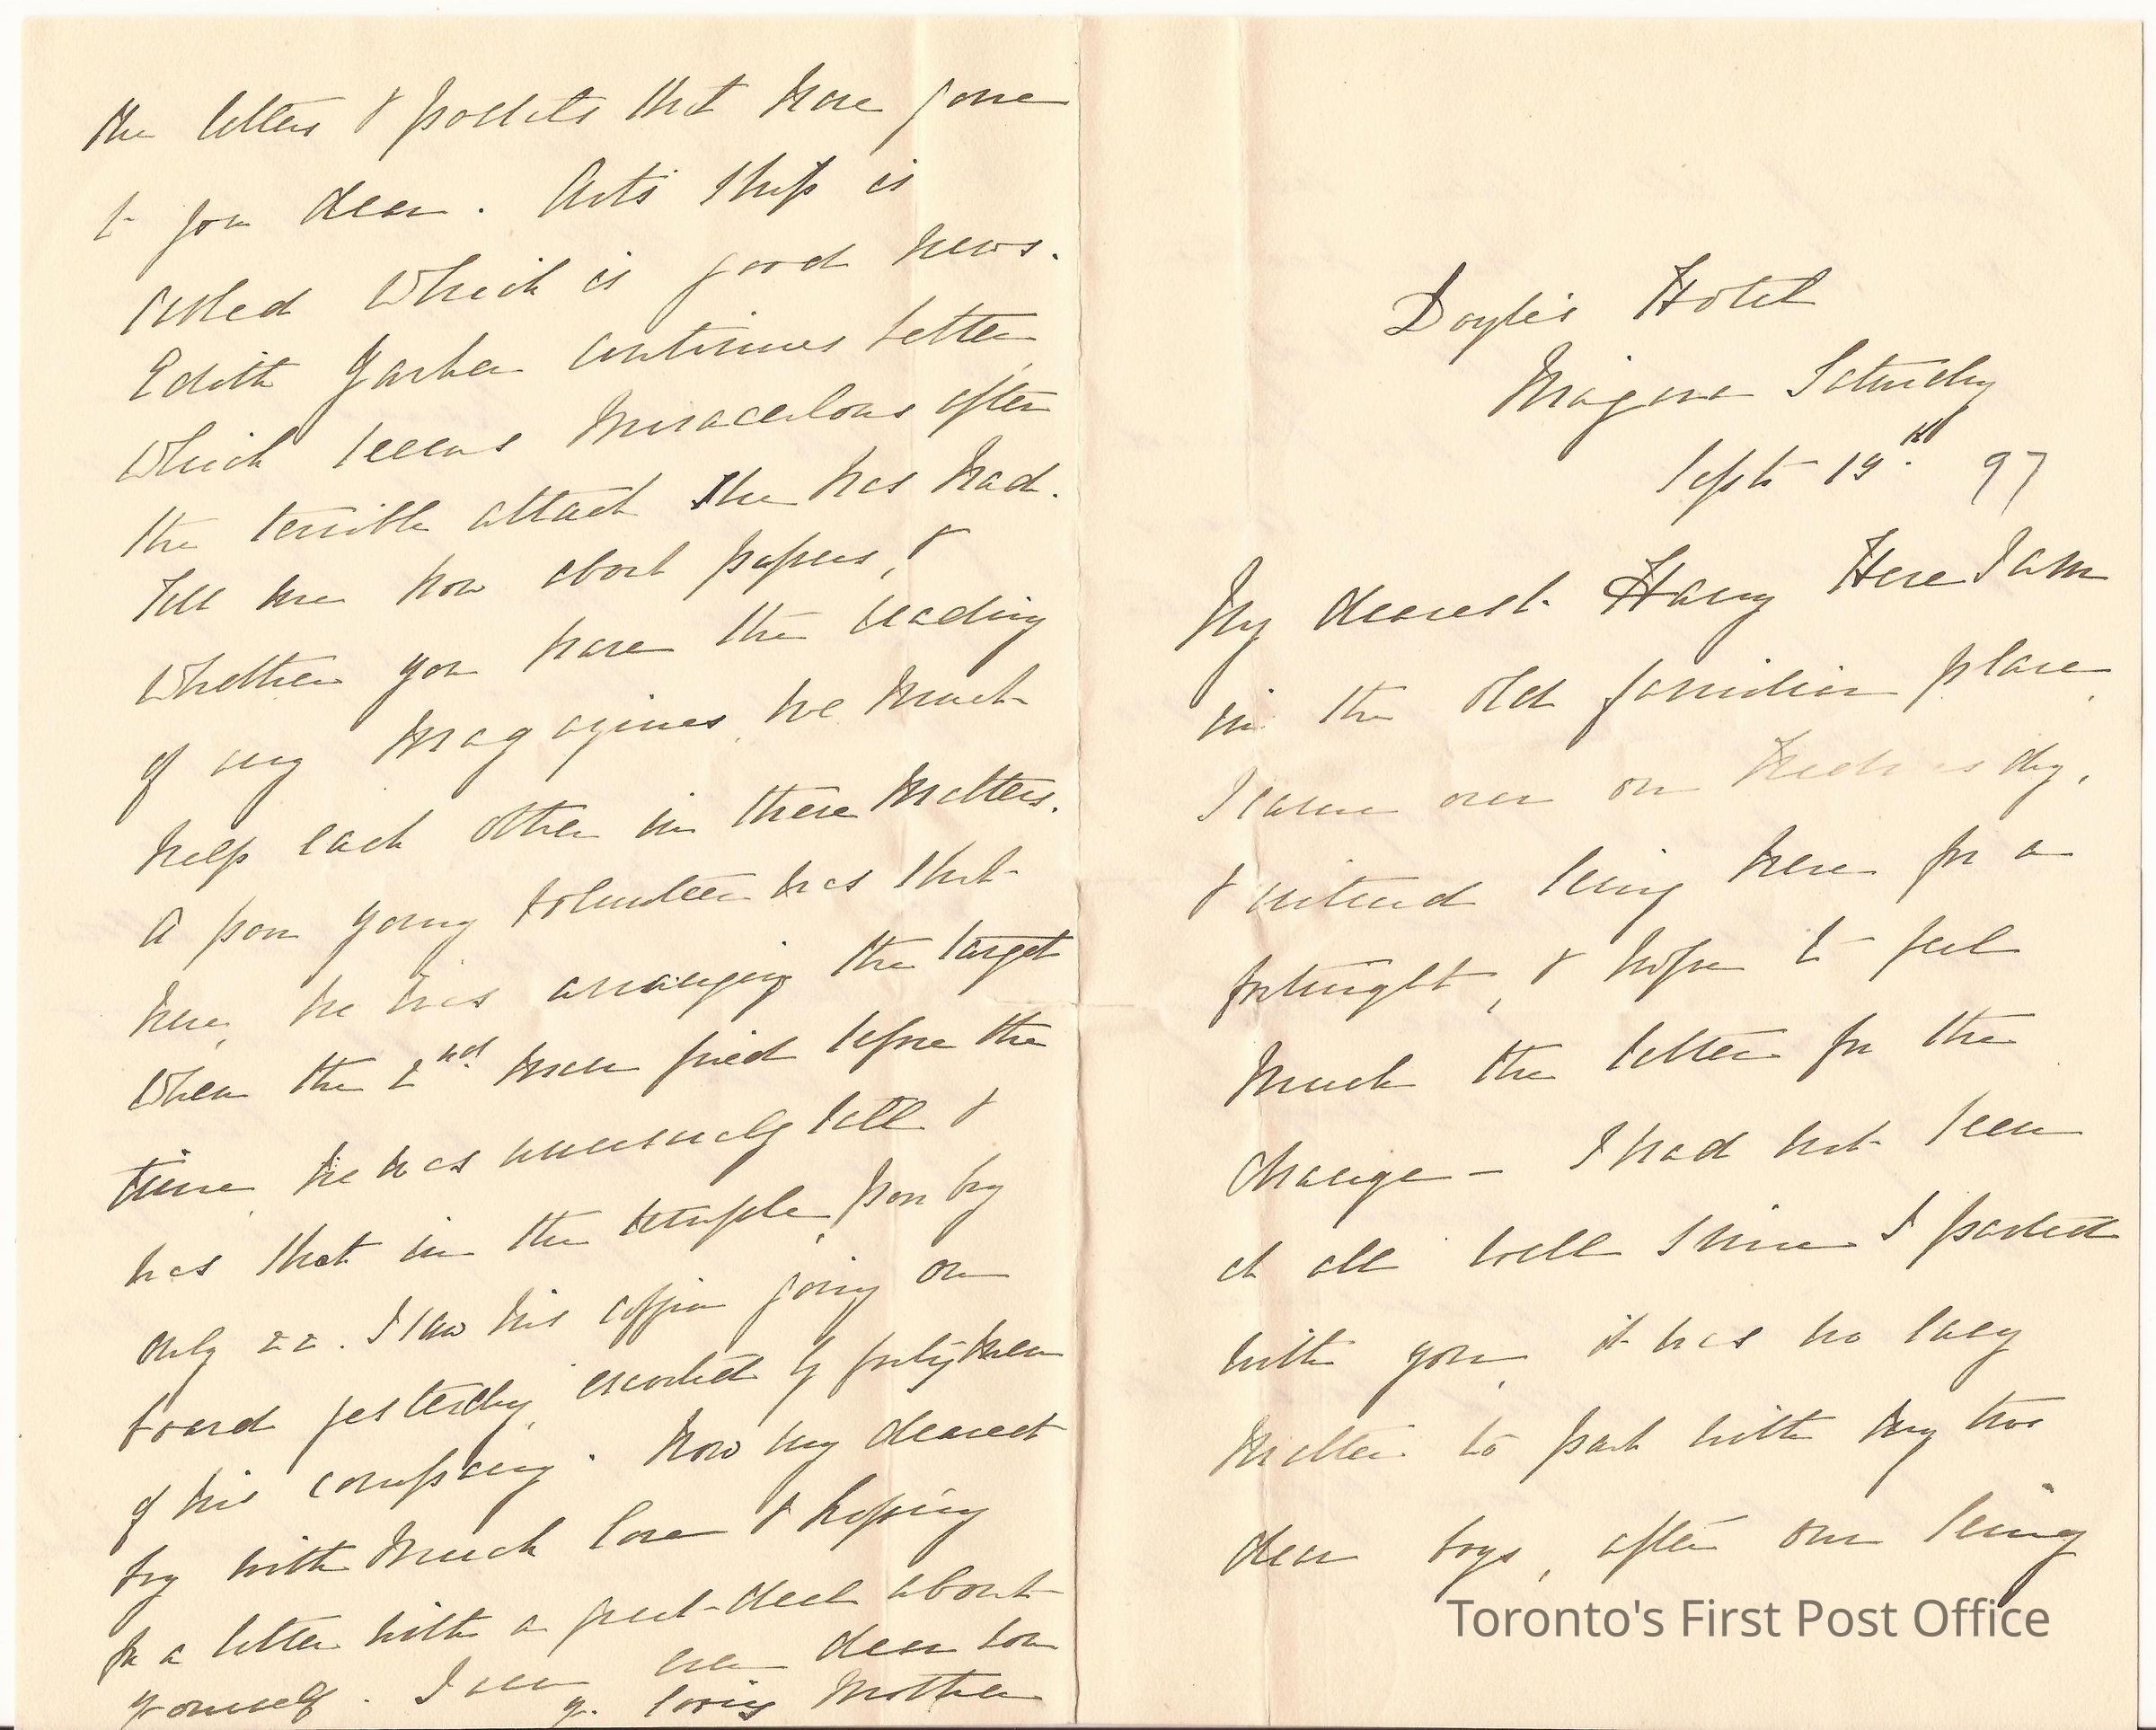 Doyle's Hotel
Niagara Saturday
Sept 19th. 97
My dearest Harry Here I am
in the old familiar place,
I came over on Wednesday,
& intend being here for a
fortnight, & hope to feel
much the better for the
change — I had not been
at all well since I parted
with you, it was no easy
matter to part with my two
dear boys, after our being
the letters & packets that have gone
to you dear. Art's ship is
which is good news.
Edith continues better,
which seems miraculous after
the terrible attack she has had.
Tell me now about papers, &
whether you have the reading
of any magazines, we must
help each other in these matters.
A poor young volunteer was shot
here, he was arranging the target
when the 2nd man fired before the
time, he was unusually tall &
was shot in the temple, poor boy
only 22. I saw his coffin going on
board yesterday, escorted by forty men
of his company. Now my dearest
boy with much love & hoping
for a letter with a great deal about
yourself. I am ever dear son
yr. loving Mother
Toronto's First Post Office